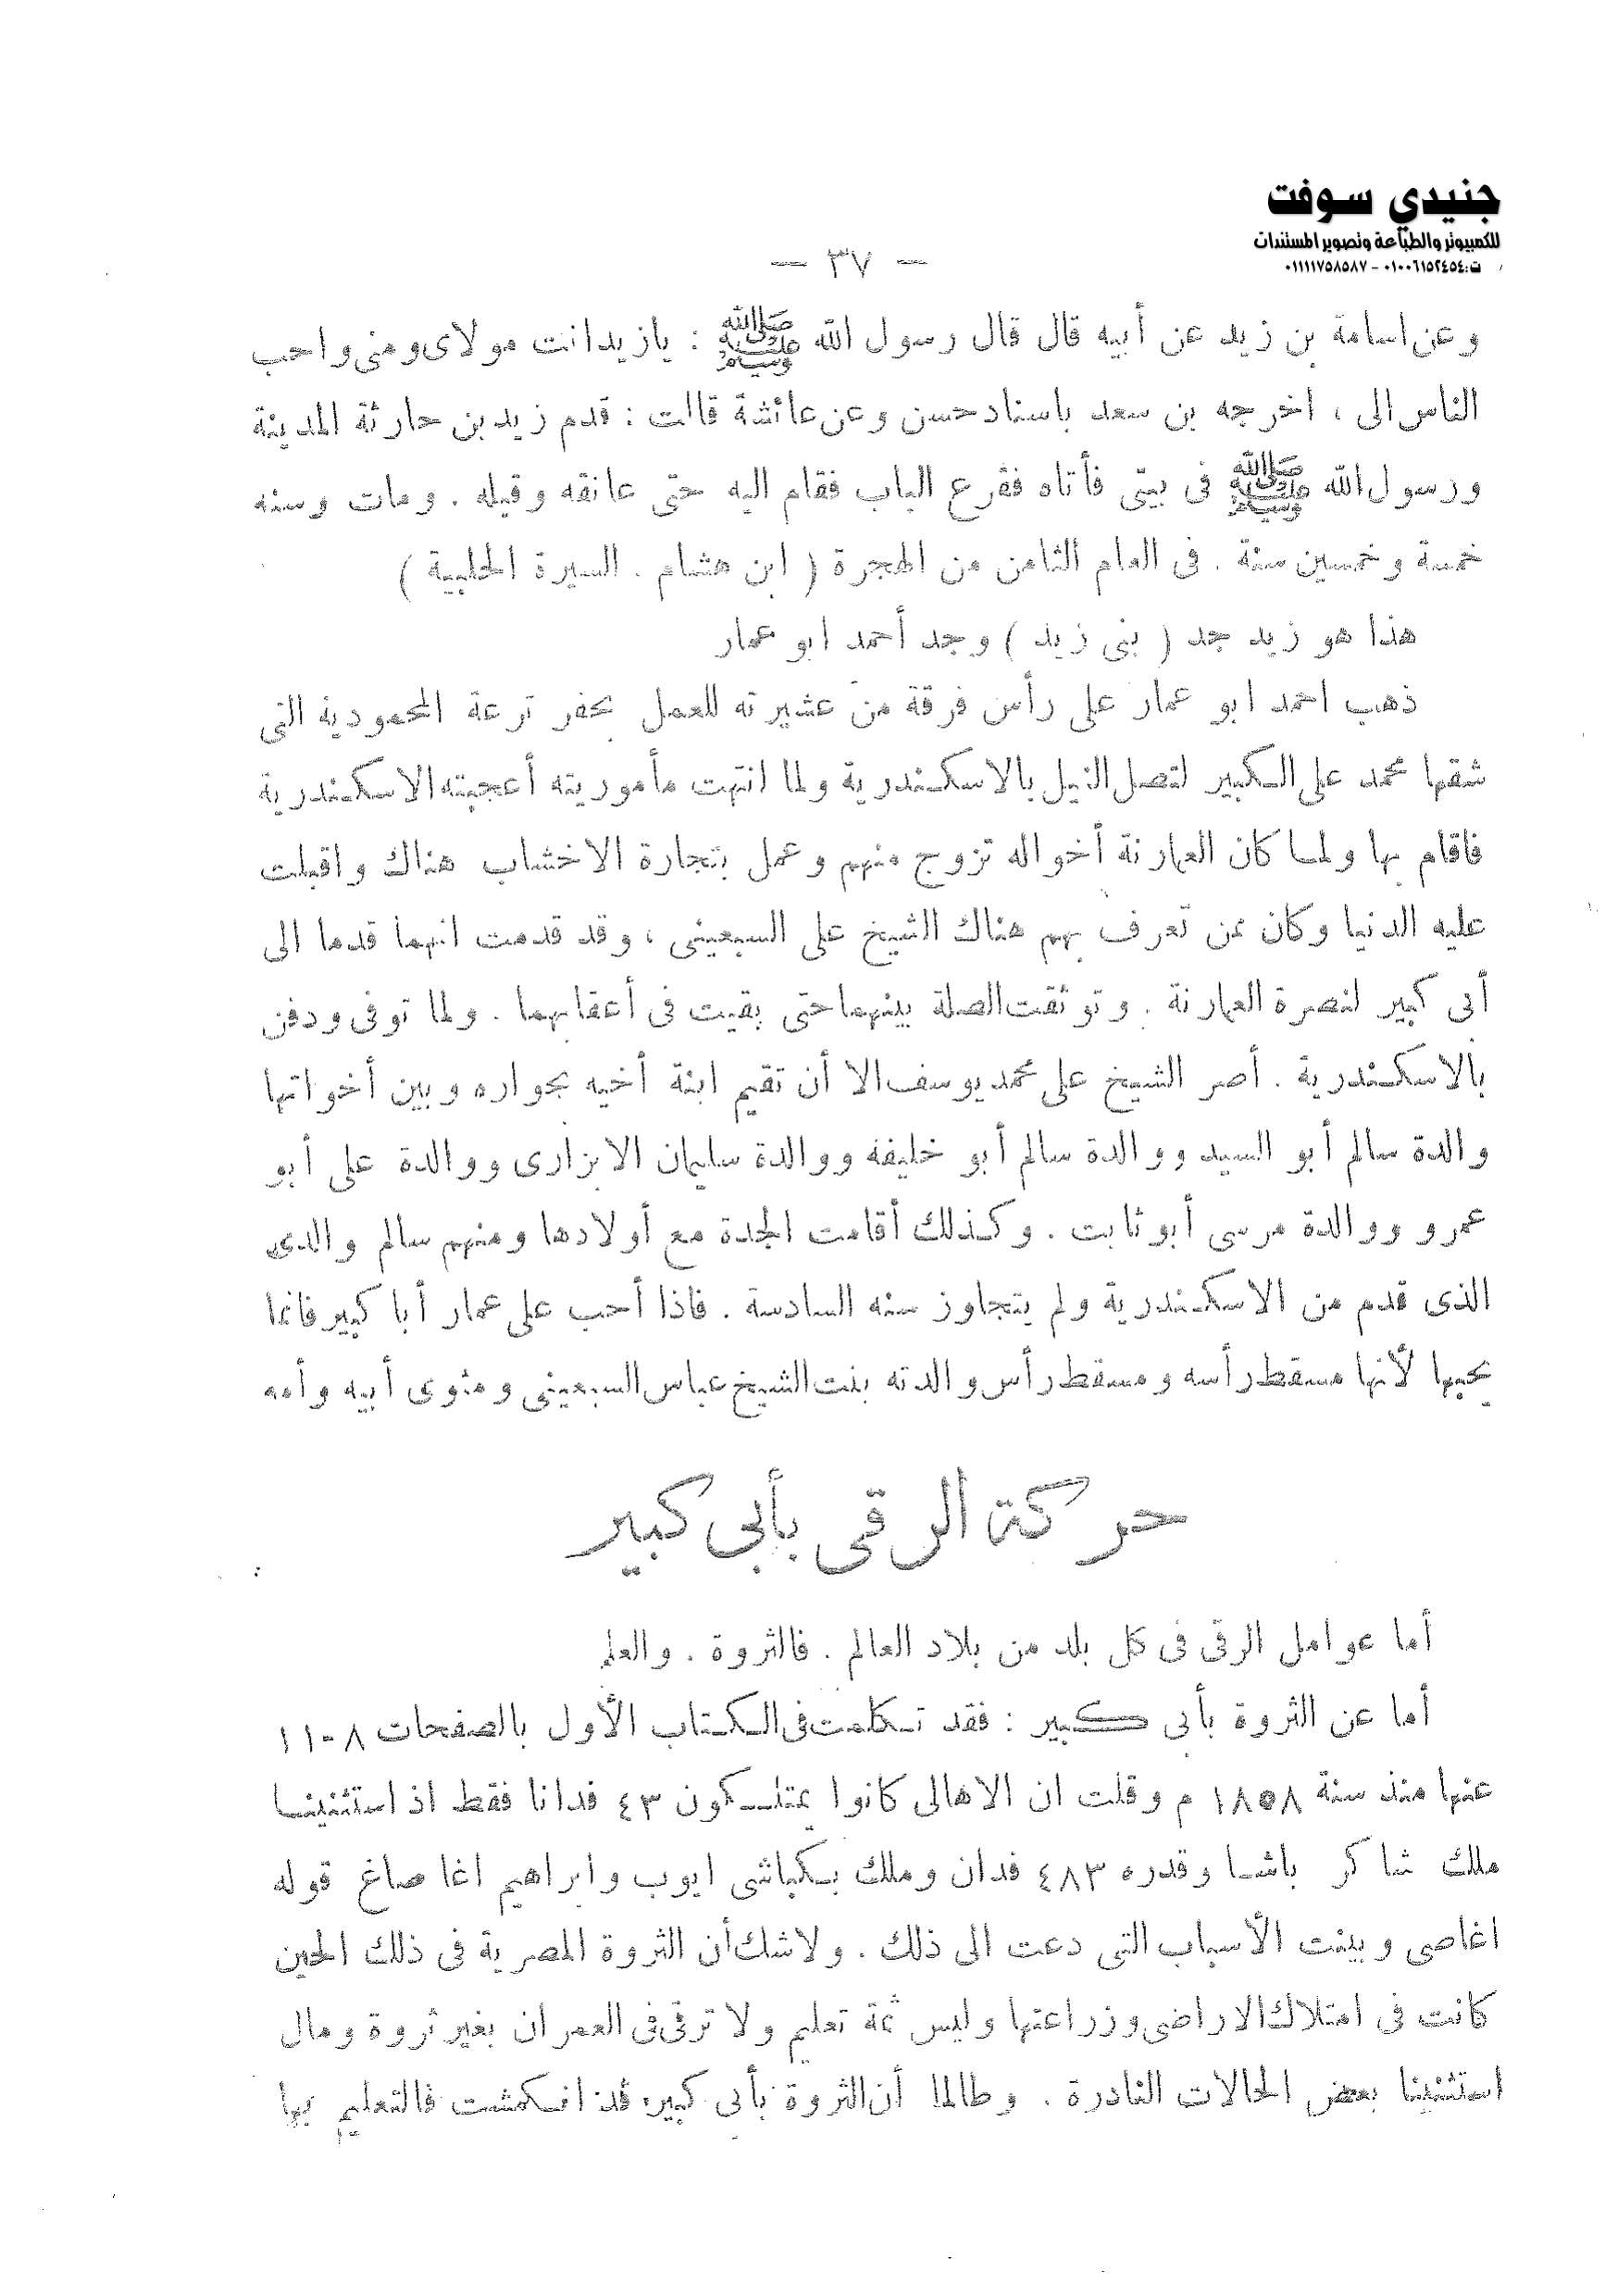 جنيدي سوفت
للكمبيوتر والطباعة وتصوير المستندات
ت:٠١٠٠٦١٥٢٤٥٤ - ٠١١١١٧٥٨٥٨٧
— ٣٧ —
وعن اسامة بن زيد عن أبيه قال قال رسول الله ﷺ : يازيد انت مولاى ومنى واحب
الناس الى ، اخرجه بن سعد باسناد حسن وعن عائشة قالت : قدم زيد بن حارثة المدينة
ورسول الله ﷺ فى بيتى فأتاه فقرع الباب فقام اليه حتى عانقه وقبله . ومات وسنه
خمسة وخمسين سنة . فى العام الثامن من الهجرة ( ابن هشام . السيرة الحلبية )
هذا هو زيد جد ( بنى زيد ) وجد أحمد ابو عمار
ذهب احمد ابو عمار على رأس فرقة من عشيرته للعمل بحفر ترعة المحمودية التى
شقها محمد على الكبير لتصل النيل بالاسكندرية ولما انتهت مأموريته أعجبته الاسكندرية
فاقام بها ولما كان العمارنة أخواله تزوج منهم وعمل بتجارة الاخشاب هناك واقبلت
عليه الدنيا وكان ممن تعرف بهم هناك الشيخ على السبعينى ، وقد قدمت انهما قدما الى
أبى كبير لنصرة العمارنة . وتوثقت الصلة بينهما حتى بقيت فى أعقابهما . ولما توفى ودفن
بالاسكندرية . أصر الشيخ على محمد يوسف الا أن تقيم ابنة أخيه بجواره وبين أخواتها
والدة سالم أبو السيد ووالدة سالم أبو خليفه ووالدة سليمان الابزارى ووالدة على أبو
عمرو ووالدة مرسى أبو ثابت . وكذلك أقامت الجدة مع أولادها ومنهم سالم والدى
الذى قدم من الاسكندرية ولم يتجاوز سنه السادسة . فاذا أحب على عمار أبا كبير فانما
يحبها لأنها مسقط رأسه ومسقط رأس والدته بنت الشيخ عباس السبعينى ومثوى أبيه وأمه
حركة الرقى بأبى كبير
أما عوامل الرقى فى كل بلد من بلاد العالم . فالثروة . والعلم
أما عن الثروة بأبى كبير : فقد تكلمت فى الكتاب الأول بالصفحات ٨-١١
عنها منذ سنة ١٨٥٨ م وقلت ان الاهالى كانوا يمتلكون ٤٣ فدانا فقط اذ استثنينا
ملك شاكر باشا وقدره ٤٨٣ فدان وملك بكباشى ايوب وابراهيم اغا صاغ قوله
اغاصى وبينت الأسباب التى دعت الى ذلك . ولاشك أن الثروة المصرية فى ذلك الحين
كانت فى امتلاك الاراضى وزراعتها وليس ثمة تعليم ولا ترقى فى العمران بغير ثروة ومال
استثنينا بعض الحالات النادرة . وطالما أن الثروة بأبى كبير قد انكمشت فالتعليم بها